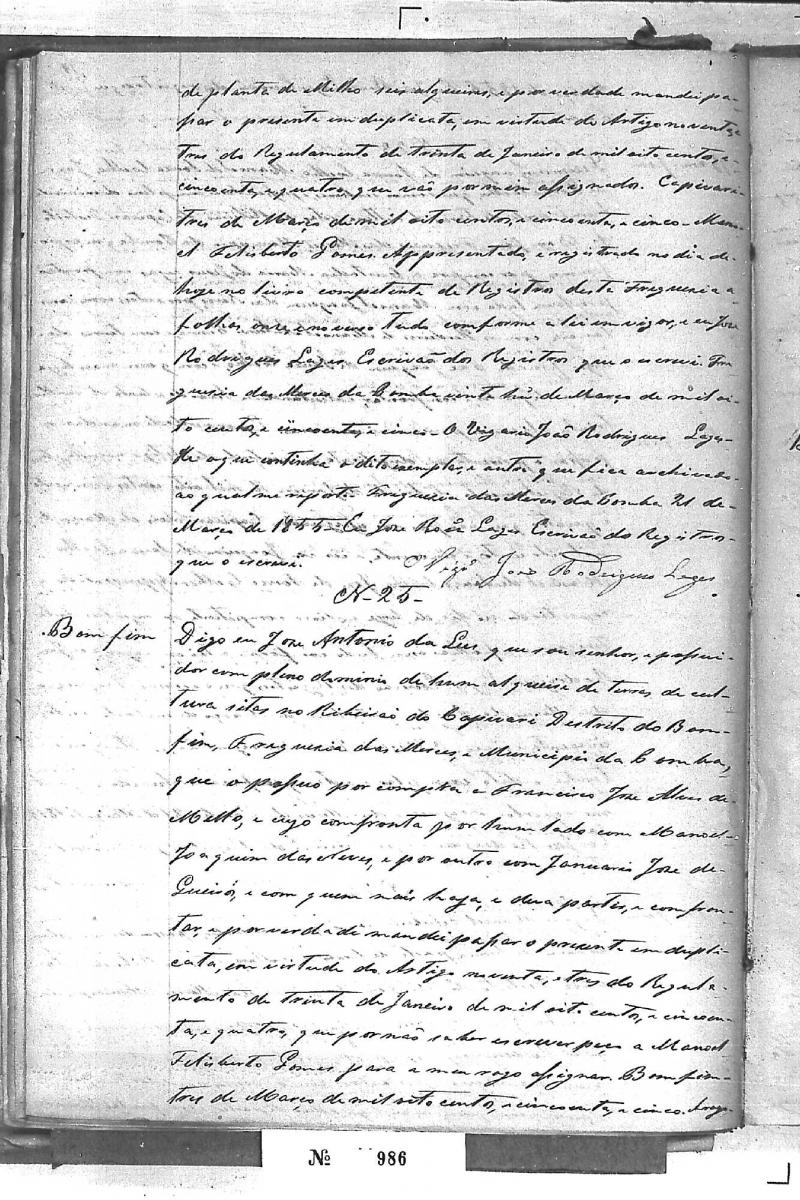 de planta de Milho seis alqueires, e por verdade mandei pa-
ssar o presente em duplicata, em virtude do Artigo noventa, e
tres do Regulamento de trinta de Janeiro de mil oito centos, e
cincoenta, e quatro, que vão por mim assignados. Capivari
tres de Março de mil oito centos, e cincoenta, e cinco - Mano-
el Felisberto Gomes. Appresentado, e registrado no dia de
hoje no livro competente de Registros desta Freguesia a
folhas onze, e no verso tudo conforme a lei em vigor, e eu Jose
Rodrigues Lages Escrivaõ dos Registros que o escrevi. Fre-
guesia das Merces da Pomba vinte hũ de Março de mil oi-
to centos, e cincoenta, e cinco - O Vigario Joaõ Rodrigues Lages -
He o que continha o dito exemplar, e outro que fica archivado
ao qual me reporto. Freguesia das Merces da Pomba 21 de
Março de 1855 - Eu Jose Roiz Lages Escrivaõ do Registros
que o escrevi.
O Vigrº Joaõ Rodrigues Lages
N - 25 -
Bom fim
Digo eu Jose Antonio da Luz, que sou senhor, e possui-
dor com pleno dominio de hum alqueire de terras de cul-
tura sitas no Ribeiraõ do Capivari Destrito do Bom-
fim, Freguesia das Merces, e Municipio da Pomba,
que o possuo por compra a Francisco Jose Alves de
Mello, e cujo confronta por hum lado com Manoel
Joaquim das Neves, e por outro com Januario Jose de
Queirós, e com quem mais haja, e deva partir, e confron-
tar, e por verdade mandei passar o presente em dupli-
cata, em virtude do Artigo noventa, e tres do Regula-
mento de trinta de Janeiro de mil oito centos, e cincoen-
ta, e quatro, que por naõ saber escrever peço a Manoel
Felisberto Gomes para a meu rogo assignar. Bom fim
tres de Março de mil oito centos, e cincoenta, e cinco. Arogo
Nº 986